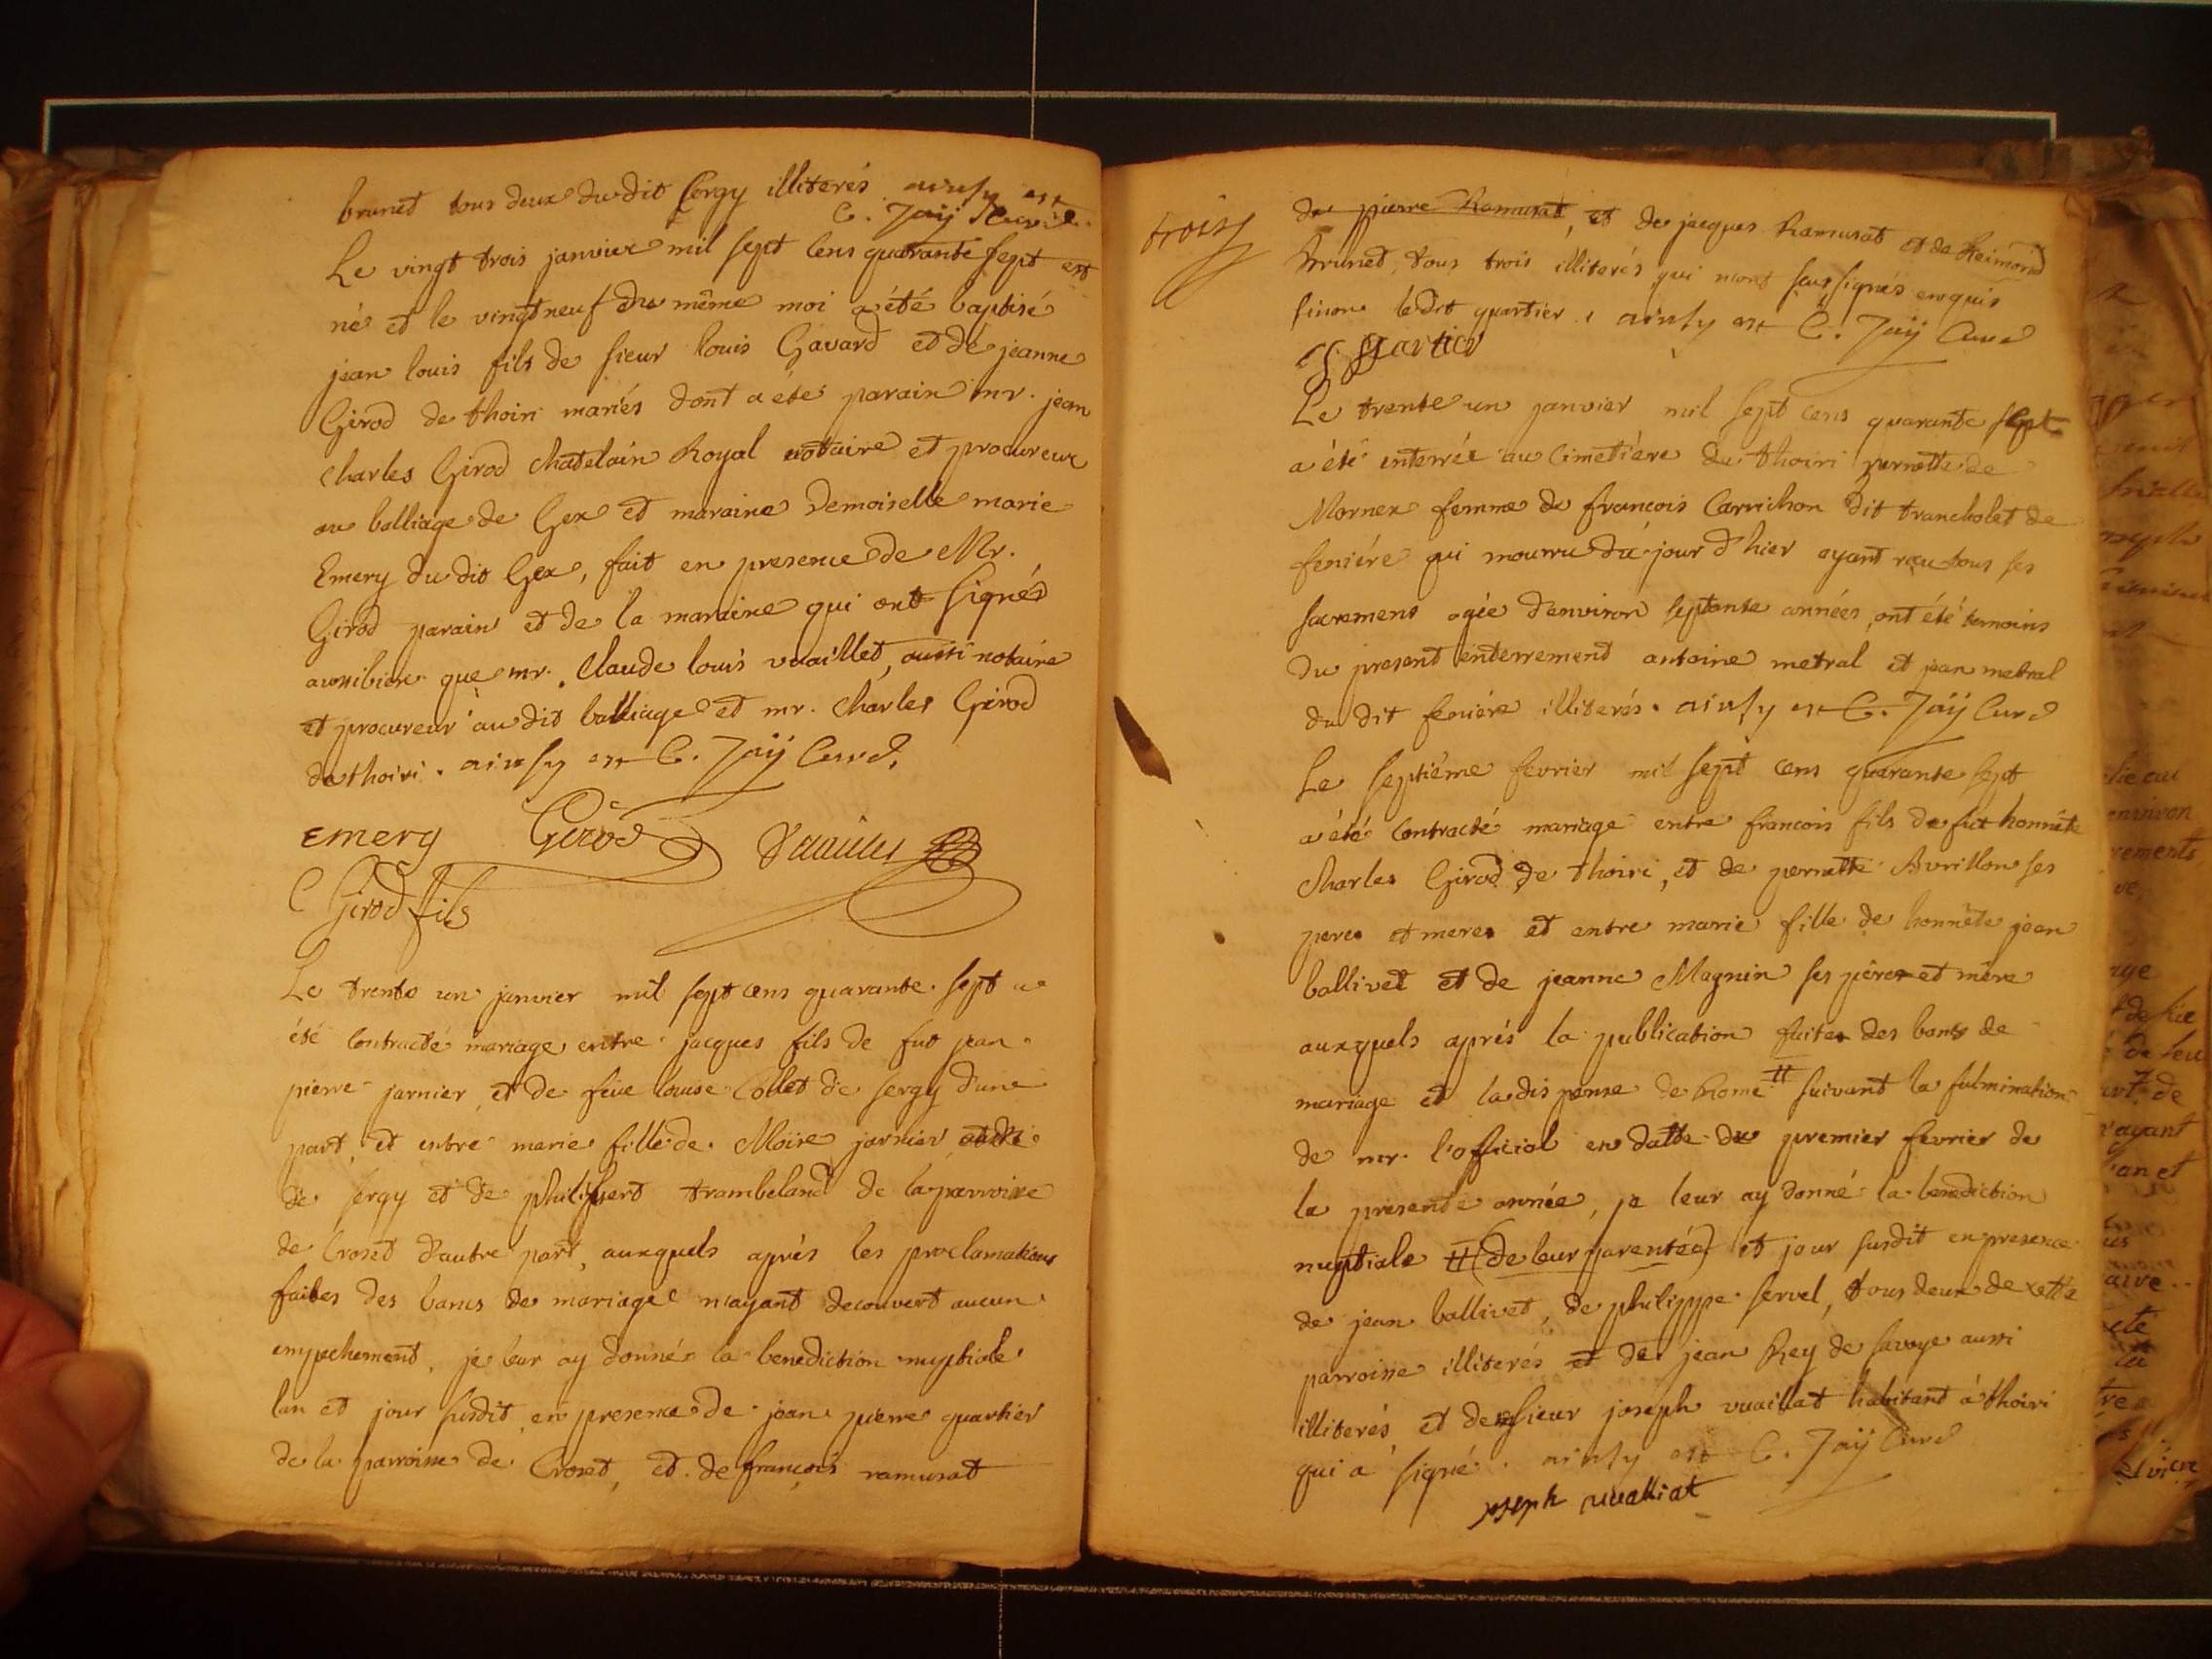 brunet tous deux du dit Sergy illiterés ainsy est
C. Jaÿ Curé
Le vingt trois janvier mil sept cens quarante sept est
né et le vingt neuf du même moi a été baptisé
jean louis fils de sieur louis Gavard et de jeanne
Girod de thoiri mariés dont a été parain mr. jean
charles Girod chatelain Royal notaire et procureur
au balliage de Gex et maraine Demoiselle marie
Emery du dit Gex, fait en presence de Mr.
Girod parain et de la maraine qui ont signés
aussibien que mr. Claude louis vuaillet, aussi notaire
et procureur au dit balliage et mr. charles Girod
de thoiri. ainsy est C. Jaÿ Curé.
emery Girod Vuaillet
C Girod fils
Le trente un janvier mil sept cens quarante sept a
été contracté mariage entre jacques fils de fut jean
pierre jarnier, et de feüe louise Collet de sergy d'une
part, et entre marie fille de Moïse jarnier
de sergy et de philiberd trambeland de la parroisse
de Croset d'autre part, auxquels aprés les proclamations
faites des bancs de mariage n'ayant decouvert aucun
empechement, je leur ay donné la benediction nuptiale
lan et jour susdit en presence de jean pierre quartier
de la parroisse de Croset, et de françois ramusat
trois
de pierre Ramusat, et de jacques Ramusat et de Reimond
Brunet, tous trois illiterés, qui n'ont sous signés enquis
sinon ledit quartier. ainsy est C. Jaÿ Curé
quartier
Le trente un janvier mil sept cens quarante sept
a été enterrée au Cimetiére de thoiri pernette de
Mornex femme de françois Carrichon dit trancholet de
feniére qui mourru du jour d'hier ayant reçu tous ses
sacremens agée d'environ septante années, ont été temoins
du present enterrement antoine metral et jean metral
du dit feniére illiterés. ainsy est C. Jaÿ Curé
Le septiéme fevrier mil sept cens quarante sept
a été contracté mariage entre francois fils de fut honnête
Charles Girod de thoiri, et de pernette Avrillon ses
peres et meres et entre marie fille de honnête jean
ballivet et de jeanne Magnin ses péres et mére
auxquels aprés la publication faites des bans de
mariage et la dispense de Rome # suivant la fulmination
de mr. l'official en datte du premier fevrier de
la presente année, je leur ay donné la benediction
nuptiale # (de leur parentéé) et jour susdit en presence
de jean ballivet, de philippe servel, tous deux de cette
parroisse illiterés et de jean Rey de savoye aussi
illiterés et de sieur joseph vuaillat habitant á thoiri
qui a signé. ainsy est C. Jaÿ Curé
joseph vualliat